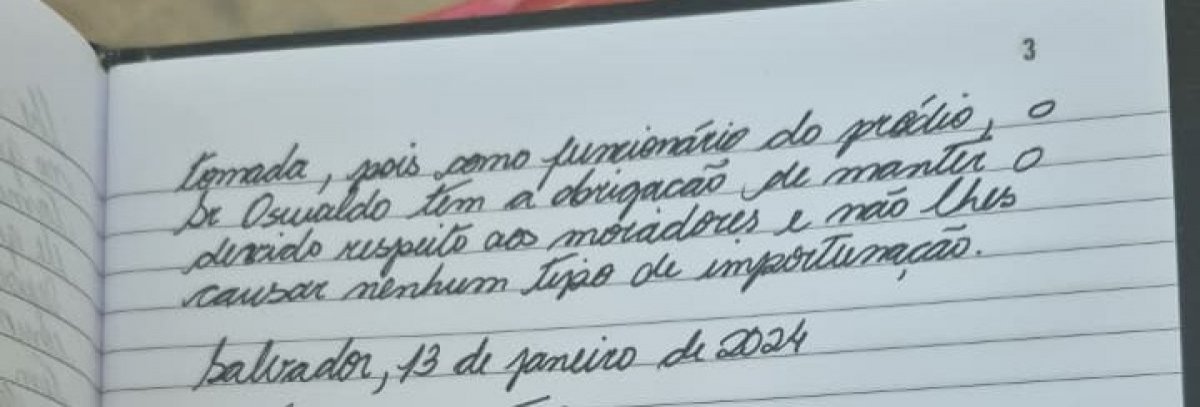 3
tomada, pois como funcionário do prédio, o
Sr Oswaldo tem a obrigação de manter o
devido respeito aos moradores e não lhes
causar nenhum tipo de importunação.
Salvador, 13 de janeiro de 2024